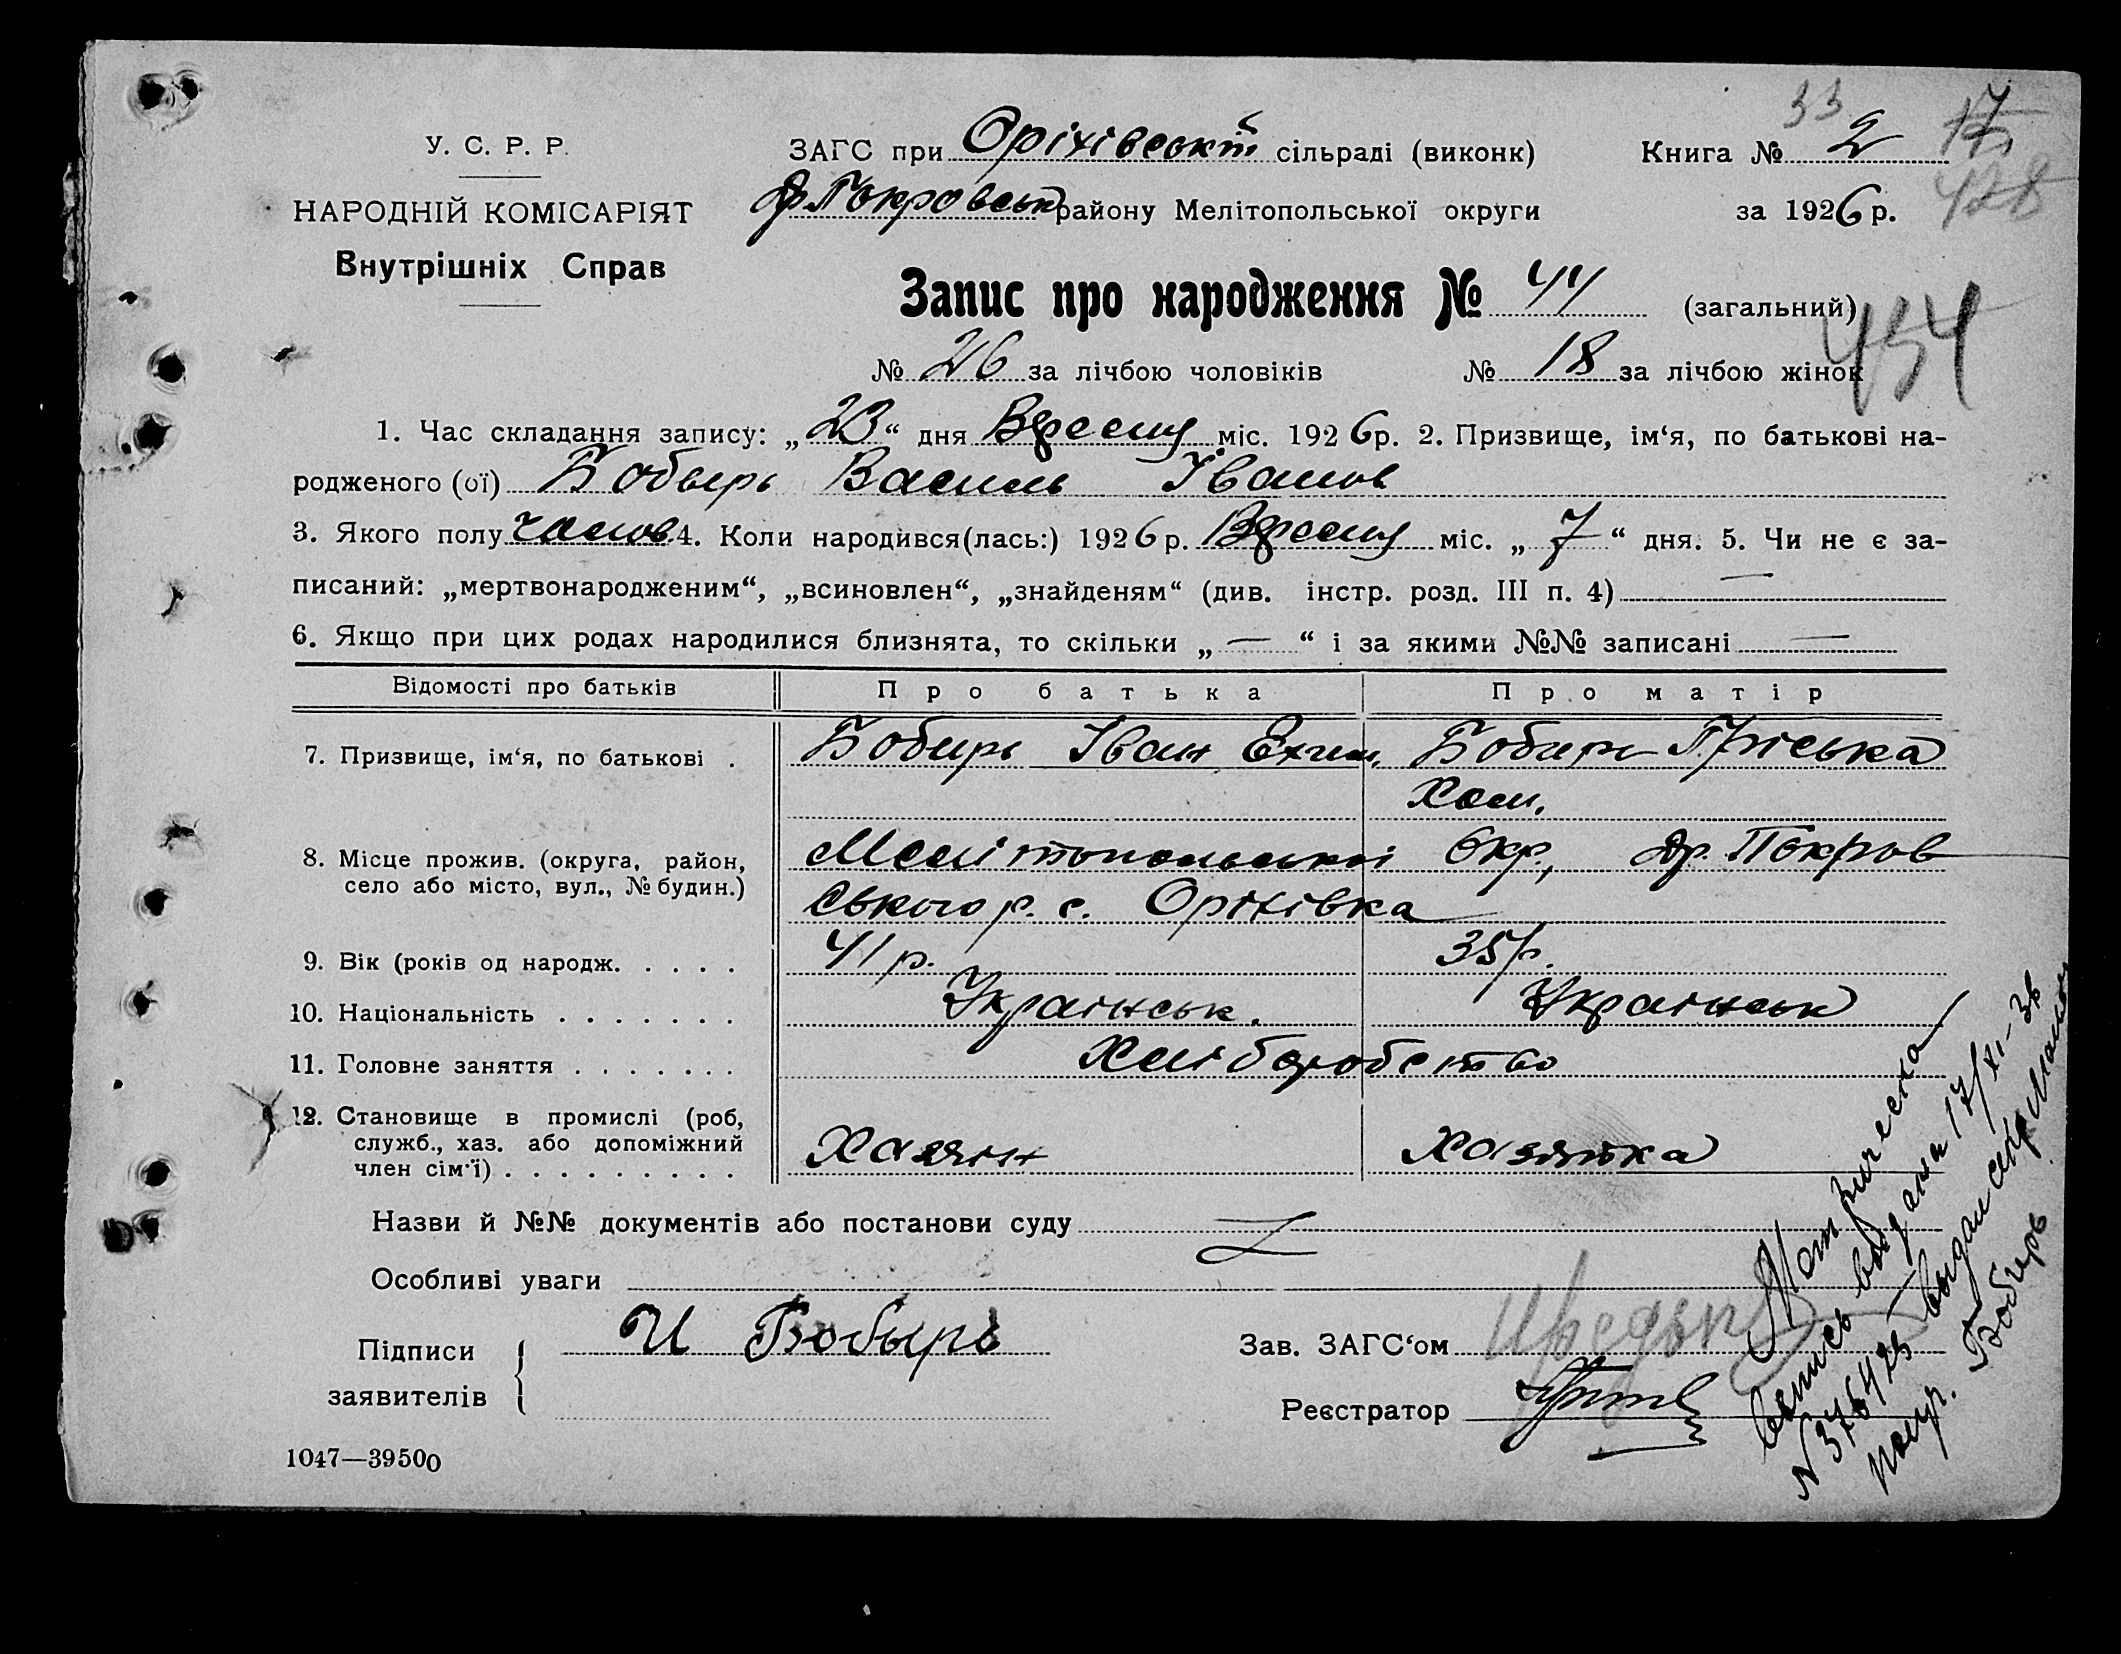 33
У. С. Р. Р.
НАРОДНІЙ КОМІСАРІЯТ
Внутрішніх Справ
ЗАГС при Оріхівській сільраді (виконк) Книга № 2
Др. Покровськ району Мелітопольської округи за 1926 р.
428
Запис про народження № 44 (загальний)
434
№ 26 за лічбою чоловіків № 18 за лічбою жінок
1. Час складання запису: „23“ дня Вересня міс. 1926 р. 2. Призвище, ім‘я, по батькові на-
родженого (ої) Бобырь Василь Іванов
3. Якого полу чолов. 4. Коли народився(лась:) 1926 р. Вересня міс. „7“ дня. 5. Чи не є за-
писаний: „мертвонародженим“, „всиновлен“, „знайденям“ (див. інстр. розд. III п. 4) —
6. Якщо при цих родах народилися близнята, то скільки „—“ і за якими №№ записані —
Відомості про батьків Про батька Про матір
7. Призвище, ім‘я, по батькові . Бобирь Іван Ехим. Бобирь Пріська
Хом.
8. Місце прожив. (округа, район,
село або місто, вул., № будин.)
Мелітопольської Окр, Др. Покров
ського р. с. Оріхівка
9. Вік (років од народж. . . . . 41 р. 35 р.
10. Національність . . . . . . . Українськ. Українськ
11. Головне заняття . . . . . . . Хліборобство
12. Становище в промислі (роб,
служб., хаз. або допоміжний
член сім‘ї) . . . . . . . . .
Хазяін Хазяйка
Назви й №№ документів або постанови суду
Особливі уваги
Підписи
заявителів
И Бобырь
Зав. ЗАГС‘ом
Реєстратор
1047—39500
Метрическа
выпись выдана 17/XI-36
N 376425 выдал секр
Бобирь